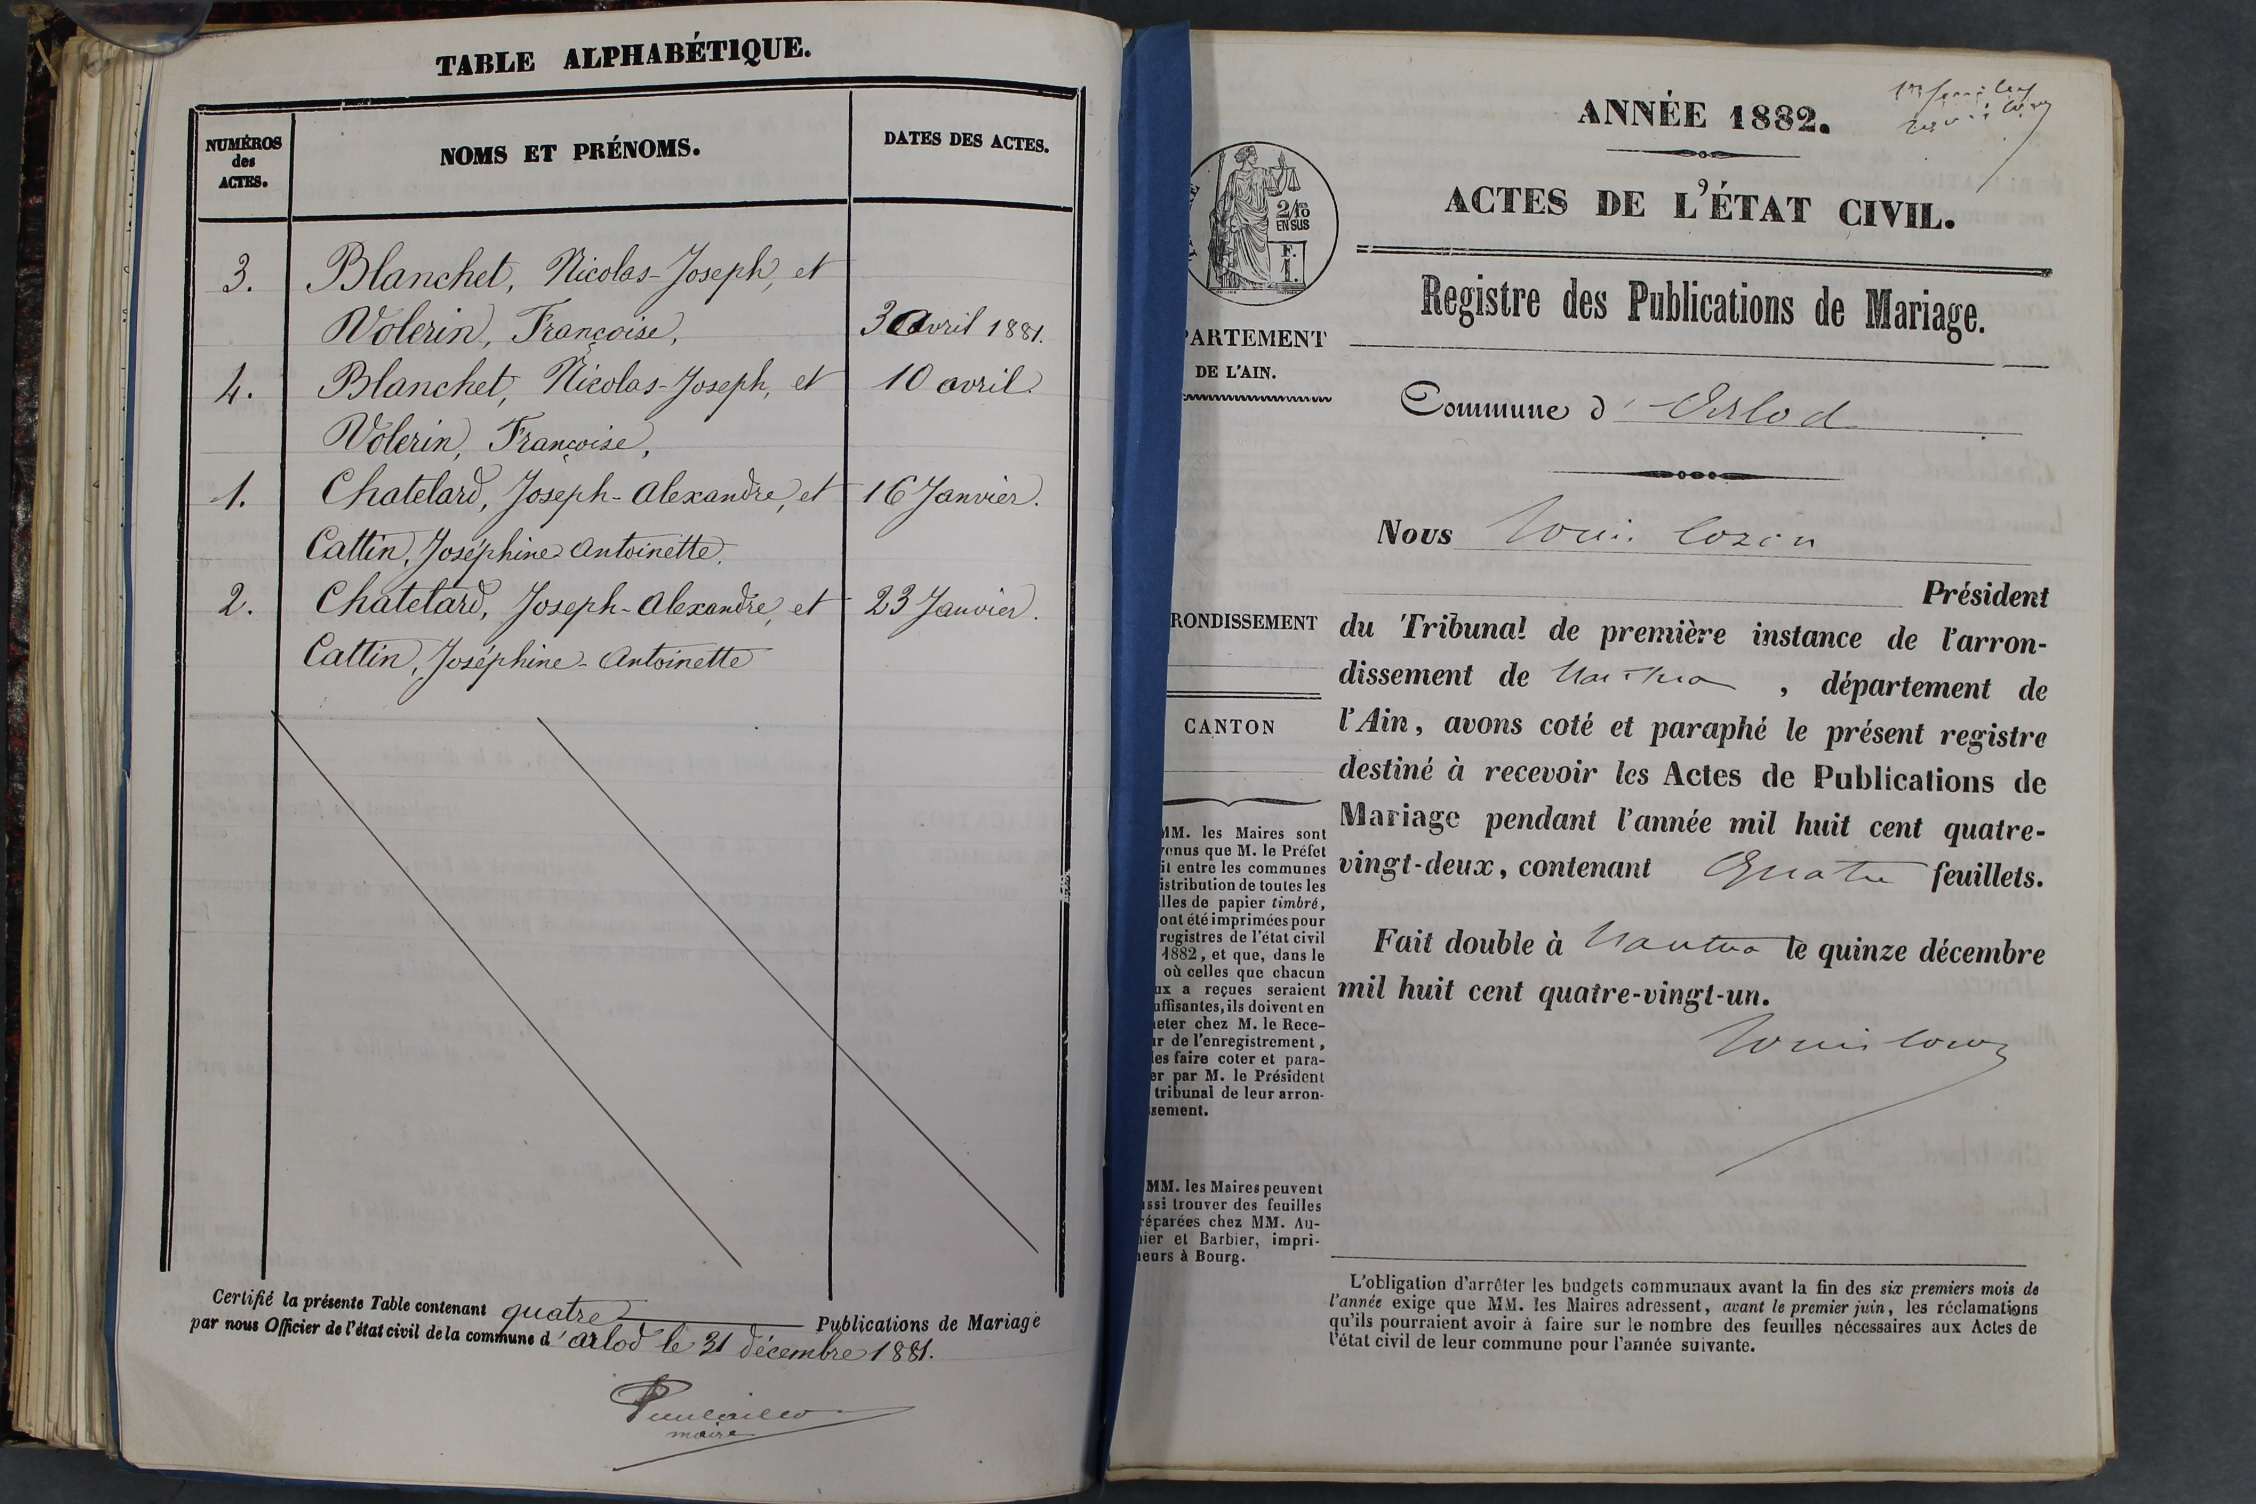 TABLE ALPHABÉTIQUE.
NUMÉROS
des
ACTES.
NOMS ET PRÉNOMS.
DATES DES ACTES.
3. Blanchet, Nicolas-Joseph, et
Volerin, Françoise, 3 avril 1881.
4. Blanchet, Nicolas-Joseph, et 10 avril.
Volerin, Françoise,
1. Chatelard, Joseph-Alexandre, et 16 Janvier.
Cattin, Joséphine Antoinette.
2. Chatelard, Joseph-Alexandre, et 23 Janvier.
Cattin, Joséphine-Antoinette
Certifié la présente Table contenant quatre Publications de Mariage
par nous Officier de l'état civil de la commune d'Arlod le 31 décembre 1881.
maire
ANNÉE 1882.
ACTES DE L'ÉTAT CIVIL.
2/10
EN SUS
F.
1.
Registre des Publications de Mariage.
PARTEMENT
DE L'AIN.
Commune d'Arlod
Nous Louis Cozon
Président
RONDISSEMENT
CANTON
du Tribunal de première instance de l'arron-
dissement de Nantua, département de
l'Ain, avons coté et paraphé le présent registre
destiné à recevoir les Actes de Publications de
Mariage pendant l'année mil huit cent quatre-
vingt-deux, contenant Quatre feuillets.
Fait double à Nantua le quinze décembre
mil huit cent quatre-vingt-un.
Louis Cozon
MM. les Maires sont
venus que M. le Préfet
it entre les communes
istribution de toutes les
illes de papier timbré,
ont été imprimées pour
registres de l'état civil
1882, et que, dans le
où celles que chacun
ux a reçues seraient
uffisantes, ils doivent en
heter chez M. le Rece-
ur de l'enregistrement,
les faire coter et para-
er par M. le Président
tribunal de leur arron-
ssement.
MM. les Maires peuvent
ussi trouver des feuilles
réparées chez MM. Au-
nier et Barbier, impri-
meurs à Bourg.
L'obligation d'arrêter les budgets communaux avant la fin des six premiers mois de
l'année exige que MM. les Maires adressent, avant le premier juin, les réclamations
qu'ils pourraient avoir à faire sur le nombre des feuilles nécessaires aux Actes de
l'état civil de leur commune pour l'année suivante.